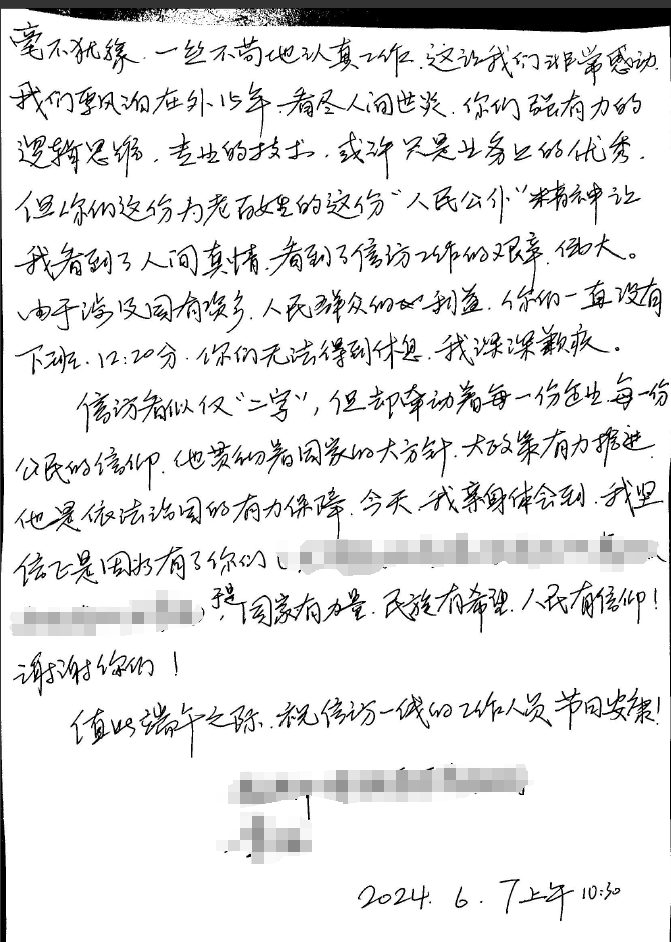 毫不犹豫、一丝不苟地认真工作、这让我们非常感动
我们漂泊在外15年、看尽人间世炎、你们强有力的
逻辑思维，专业的技术，或许只是业务上的优秀，
但你们这份为老百姓的这份“人民公仆”精神让
我看到了人间真情、看到了信访工作的艰辛、伟大。
由于涉及国有资产、人民群众的利益、你们一直没有
下班、12:20分、你们无法得到休息、我深深歉疚。
信访看似仅“二字”，但却牵动着每一份 每一份
公民的信仰、他贯彻着国家的大方针、大政策有力推进、
他是依法治国的有力保障、今天、我亲身体会到、我坚
信正是因为有了你们（
于是，国家有力量、民族有希望、人民有信仰！
谢谢你们！
值此端午之际、祝信访一线的工作人员 节日安康！
2024. 6. 7上午10:30